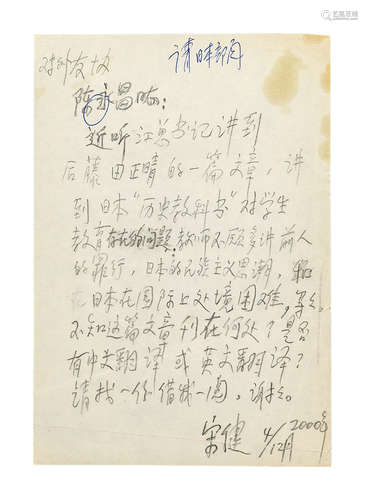 请日本部阅
对外友协
陈永昌:
近听江总书记讲到
后藤田正晴的一篇文章,讲
到日本"历史教科书"对学生
教育存在的问题:教师不愿多讲前人
的罪行,日本的民族主义思潮,
日本在国际上处境困难,等等。
不知这篇文章刊在何处?是否
有中文翻译或英文翻译?
请找一份借我一阅,谢谢。
宋健 4/12月 2000年
易拍全球